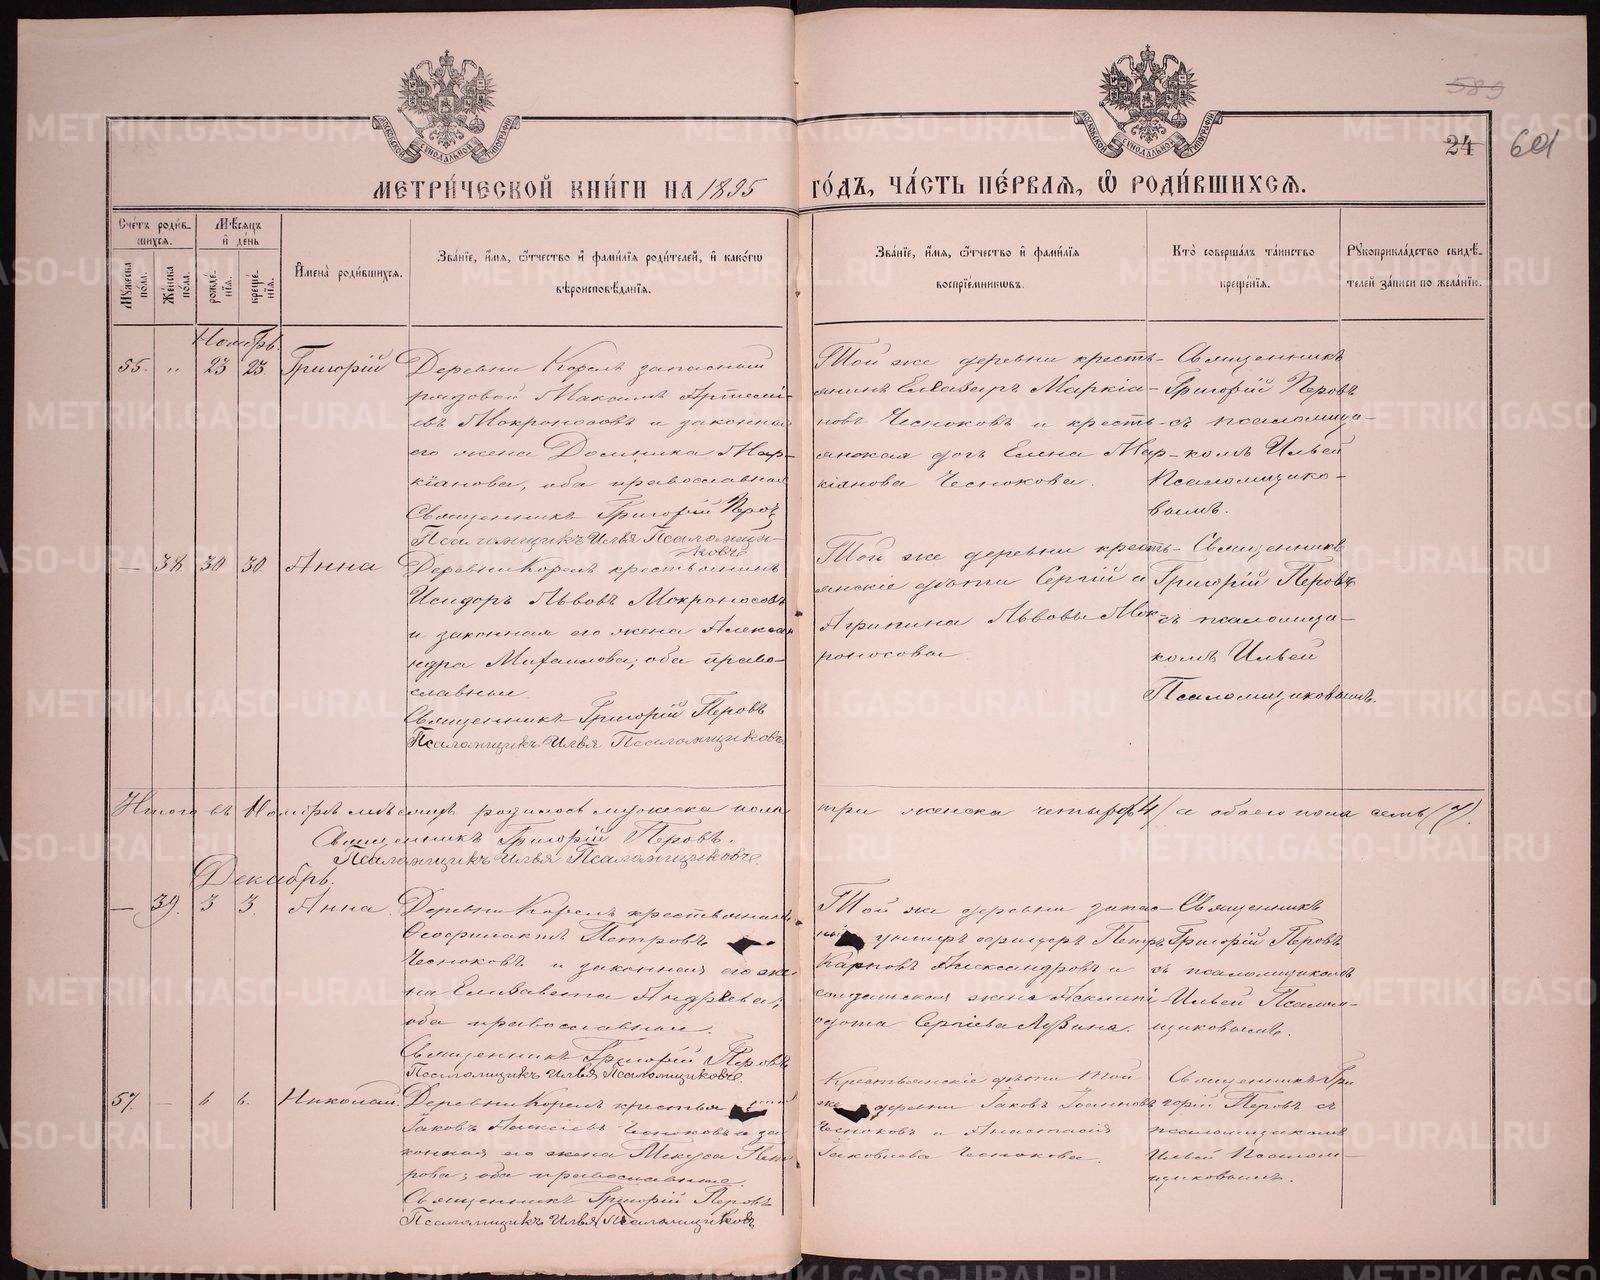 589
24 601
МОСКОВСКОЙ СѴНОДАЛЬНОЙ ТИПОГРАФІИ
МОСКОВСКОЙ СѴНОДАЛЬНОЙ ТИПОГРАФІИ
МЕТРИ́ЧЕСКОЙ КНИ́ГИ НА 1895 ГО́ДЪ, ЧА́СТЬ ПЕ́РВАЯ, Ѡ҆ РОДИ́ВШИХСЯ.
Сче́тъ роди́вшихся.
Мꙋ́жеска по́ла.
Же́нска по́ла.
Мѣ́сяцъ и҆ де́нь
рожде́нїя.
креще́нїя.
И҆мена̀ роди́вшихся.
Зва́нїе, и҆́мя, ѻ҆́тчество и҆ фами́лїя роди́телей, и҆ како́гѡ
вѣроисповѣ́данїя.
Зва́нїе, и҆́мя, ѻ҆́тчество и҆ фами́лїя
воспрїе́мникѡвъ.
Кто̀ соверша́лъ та́инство
креще́нїя.
Рꙋкоприкла́дство свидѣ́-
телей за́писи по жела́нїю.
Ноябрь.
55. „ 23 23 Григорій
Деревни Корелъ запасный
рядовой Максимъ Артемі-
евъ Мокроносовъ и законная
его жена Домника Мар-
кіанова, оба православные
Священникъ Григорій Перовъ
Псаломщикъ Илья Псаломщи-
ковъ
Той же деревни кресть-
янинъ Елеазаръ Маркіа-
новъ Чесноковъ и кресть-
янская дочь Елена Мар-
кіанова Чеснокова.
Священникъ
Григорій Перовъ
съ псаломщи-
комъ Ильей
Псаломщико-
вымъ.
— 38. 30 30. Анна
Деревни Корелъ крестьянинъ
Исидоръ Львовъ Мокроносовъ
и законная его жена Алексан
ндра Михаилова; оба право-
славные.
Священникъ Григорій Перовъ
Псаломщикъ Илья Псаломщиковъ
Той же деревни кресть-
янскіе дѣти Сергій и
Агрипина Львовы Мок-
роносовы
Священникъ
Григорій Перовъ
съ псаломщи-
комъ Ильей
Псаломщиковымъ.
Итого въ Ноябрѣ мѣсяцѣ родилось мужеска пола три женска четыре /4/ а обоего пола семь (7).
Священникъ Григорій Перовъ.
Псаломщикъ Илья Псаломщиковъ.
Декабрь.
— 39. 3 3. Анна
Деревни Корелъ крестьянинъ
Ѳеофилактъ Петровъ
Чесноковъ и законная его же-
на Елизавета Андреева;
оба православные.
Священникъ Григорій Перовъ
Псаломщикъ Илья Псаломщиковъ
Той же деревни запас-
ный унтеръ офицеръ Петръ
Карповъ Александровъ и
солдатская жена
Сергіева
Священникъ
Григорій Перовъ
съ псаломщикомъ
Ильей Псалом-
щиковымъ.
57. — 6 6. Николай.
Деревни Корелъ крестья
Іаковъ Алексіевъ Чесноковъ и за-
конная его жена Пет-
рова; оба православные.
Священникъ Григорій Перовъ
Псаломщикъ Илья Псаломщиковъ
Крестьянскіе дѣти той
же деревни Іаковъ Іоанновъ
Чесноковъ и Анастасія
Іаковлева Чеснокова.
Священникъ Гри
горій Перовъ съ
псаломщикомъ
Ильей Псалом-
щиковымъ.
METRIKI.GASO-URAL.RU